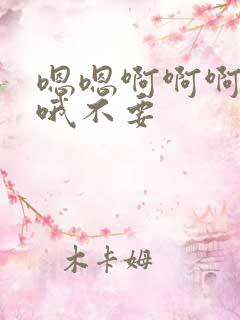 嗯嗯啊啊啊
哦不要
木卡姆